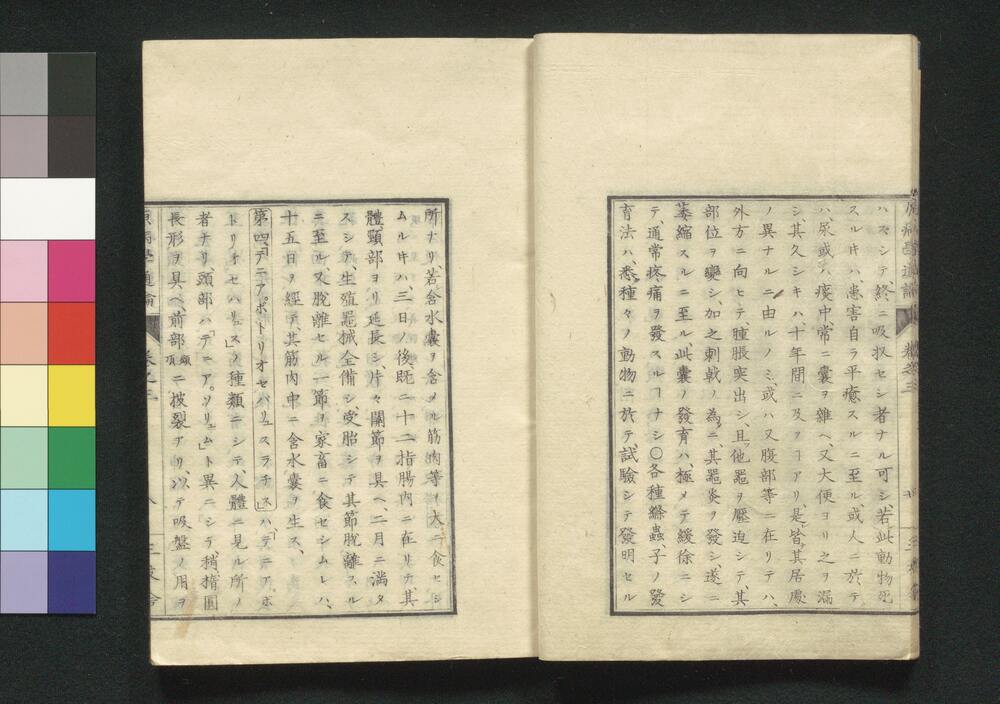 ハスシテ終ニ吸収セシ者ナル可シ若此動物死
スルキハ患害自ラ平癒スルニ至ル或人ニ於テ
ハ、尿或ハ痰中常ニ囊ヲ雑ヘ、又大便ヨリ之ヲ漏
シ、其久シキハ十年間ニ及フヿアリ、是皆其居處
ノ異ナルニ由ルノミ、或ハ又腹部等ニ在リテハ、
外方ニ向ヒテ、腫脹突出シ、且他器ヲ壓迫シテ、其
部位ヲ變シ、加之刺戟ノ為ニ、其器炎ヲ發シ、遂ニ
萎縮スルニ至ル、此囊ノ發育ハ、極メテ緩徐ニシ
テ、通常疼痛ヲ發スルヿナシ〇各種絛蟲、子ノ發
育法ハ、悉種々ノ動物ニ於テ、試驗シテ發明セル
所ナリ若含水囊ヲ含メル筋肉等ヲ犬ニ食セシ
ムルキハ、三日ノ後既ニ十二指腸内ニ在リテ、其
體、頸部ヨリ延長シ、片々關節ヲ具ヘ、二月ニ満タ
スシテ、生殖器械全備シ、受胎シテ其節脱離スル
ニ至ル、又脱離セル一節ヲ、家畜ニ食セシムレハ、
十五日ヲ經テ、其筋肉中ニ含水囊ヲ生ス、
第四「テニア、ボトリオセパリュスラチス」ハ、「テニア、ボ
トリオセハリュス」ノ種類ニシテ、人體ニ見ル所ノ
者ナリ、頭部ハ「テニア。ソリュム」ト異ニシテ稍橢圓
長形ヲ具ヘ、前部 頭頂 ニ披裂アリ、以テ吸盤ノ用ヲ
原病學通論
卷之三